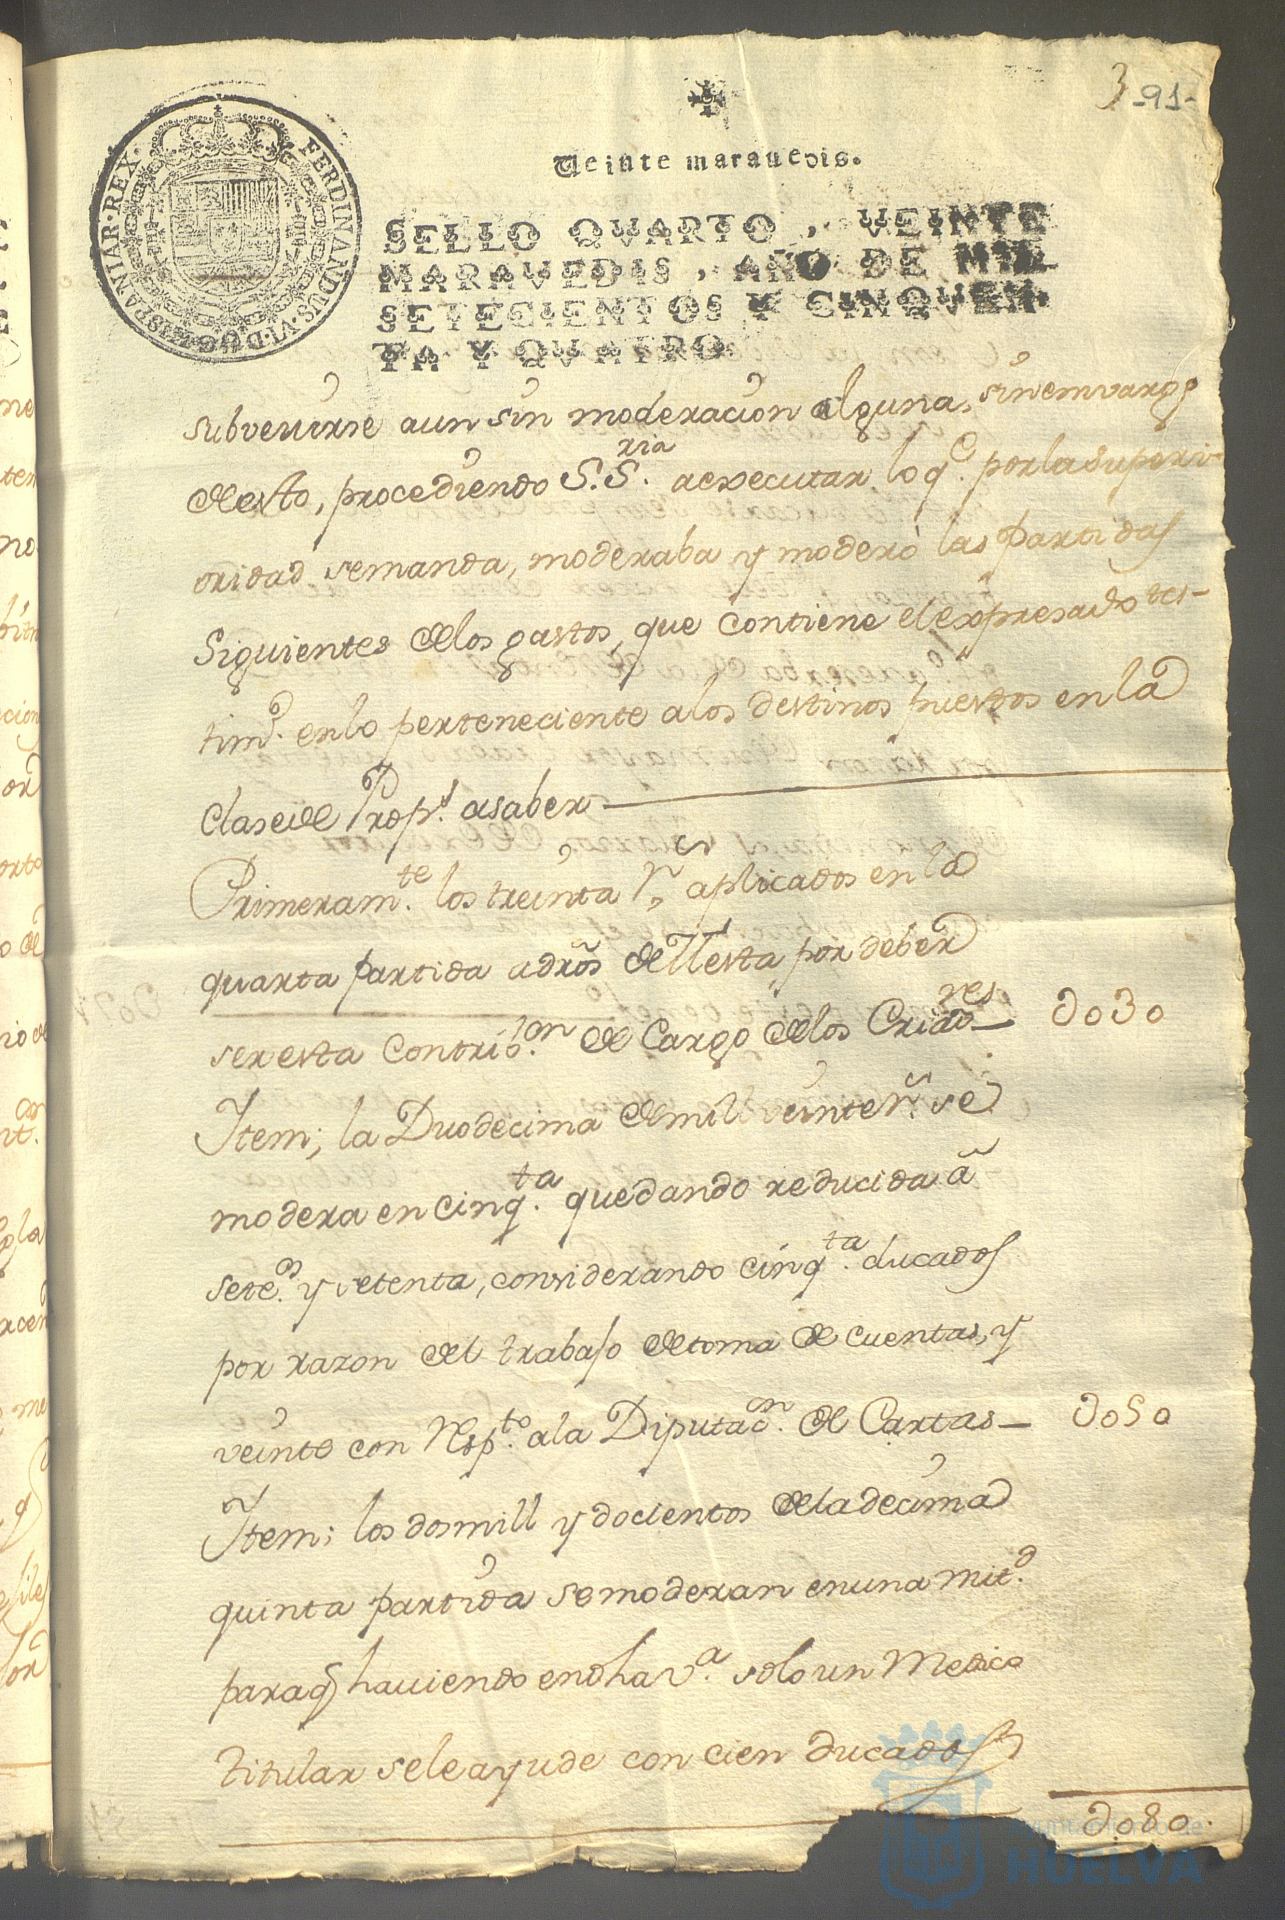 3 -91-
Veinte maravedis.
FERDINANDUS·VI·D·G·HISPANIAR·REX·
SELLO QVARTO, VEINTE
MARAVEDIS, AÑO DE MIL
SETECIENTOS Y CINQVEN-
TA Y QVATRO.
subvenirse aun sin moderacion alguna, sinemvargo
de esto, procediendo S.S.ria aexecutar lo q.e por la Superi-
oridad semanda, moderaba y moderó las partidas
Siguientes delos gastos, que contiene el expresado tes-
timo. en lo perteneciente alos destinos puestos en la
clase de Prop.s asaber
Primeram.te los treinta r.s aplicados en la
quarta partida a dros de Uesta por deber
ser esta contrib.on de Cargo delos Criadores 030
Item; la Duodecima de mill veinte r.s se
modera en cinq.ta quedando reducida â
sete.s y setenta, considerando cinq.ta ducados
por razon del trabajo de toma de cuentas, y
veinte con resp.to ala Diputac.n de Cartas 050
Item; los dosmill y docientos de la decima
quinta partida se moderan en una mit.d
para q haviendo en dha v.a solo un Medico
titular sele ayude con cien ducados
080.
Ayuntamiento de
HUELVA